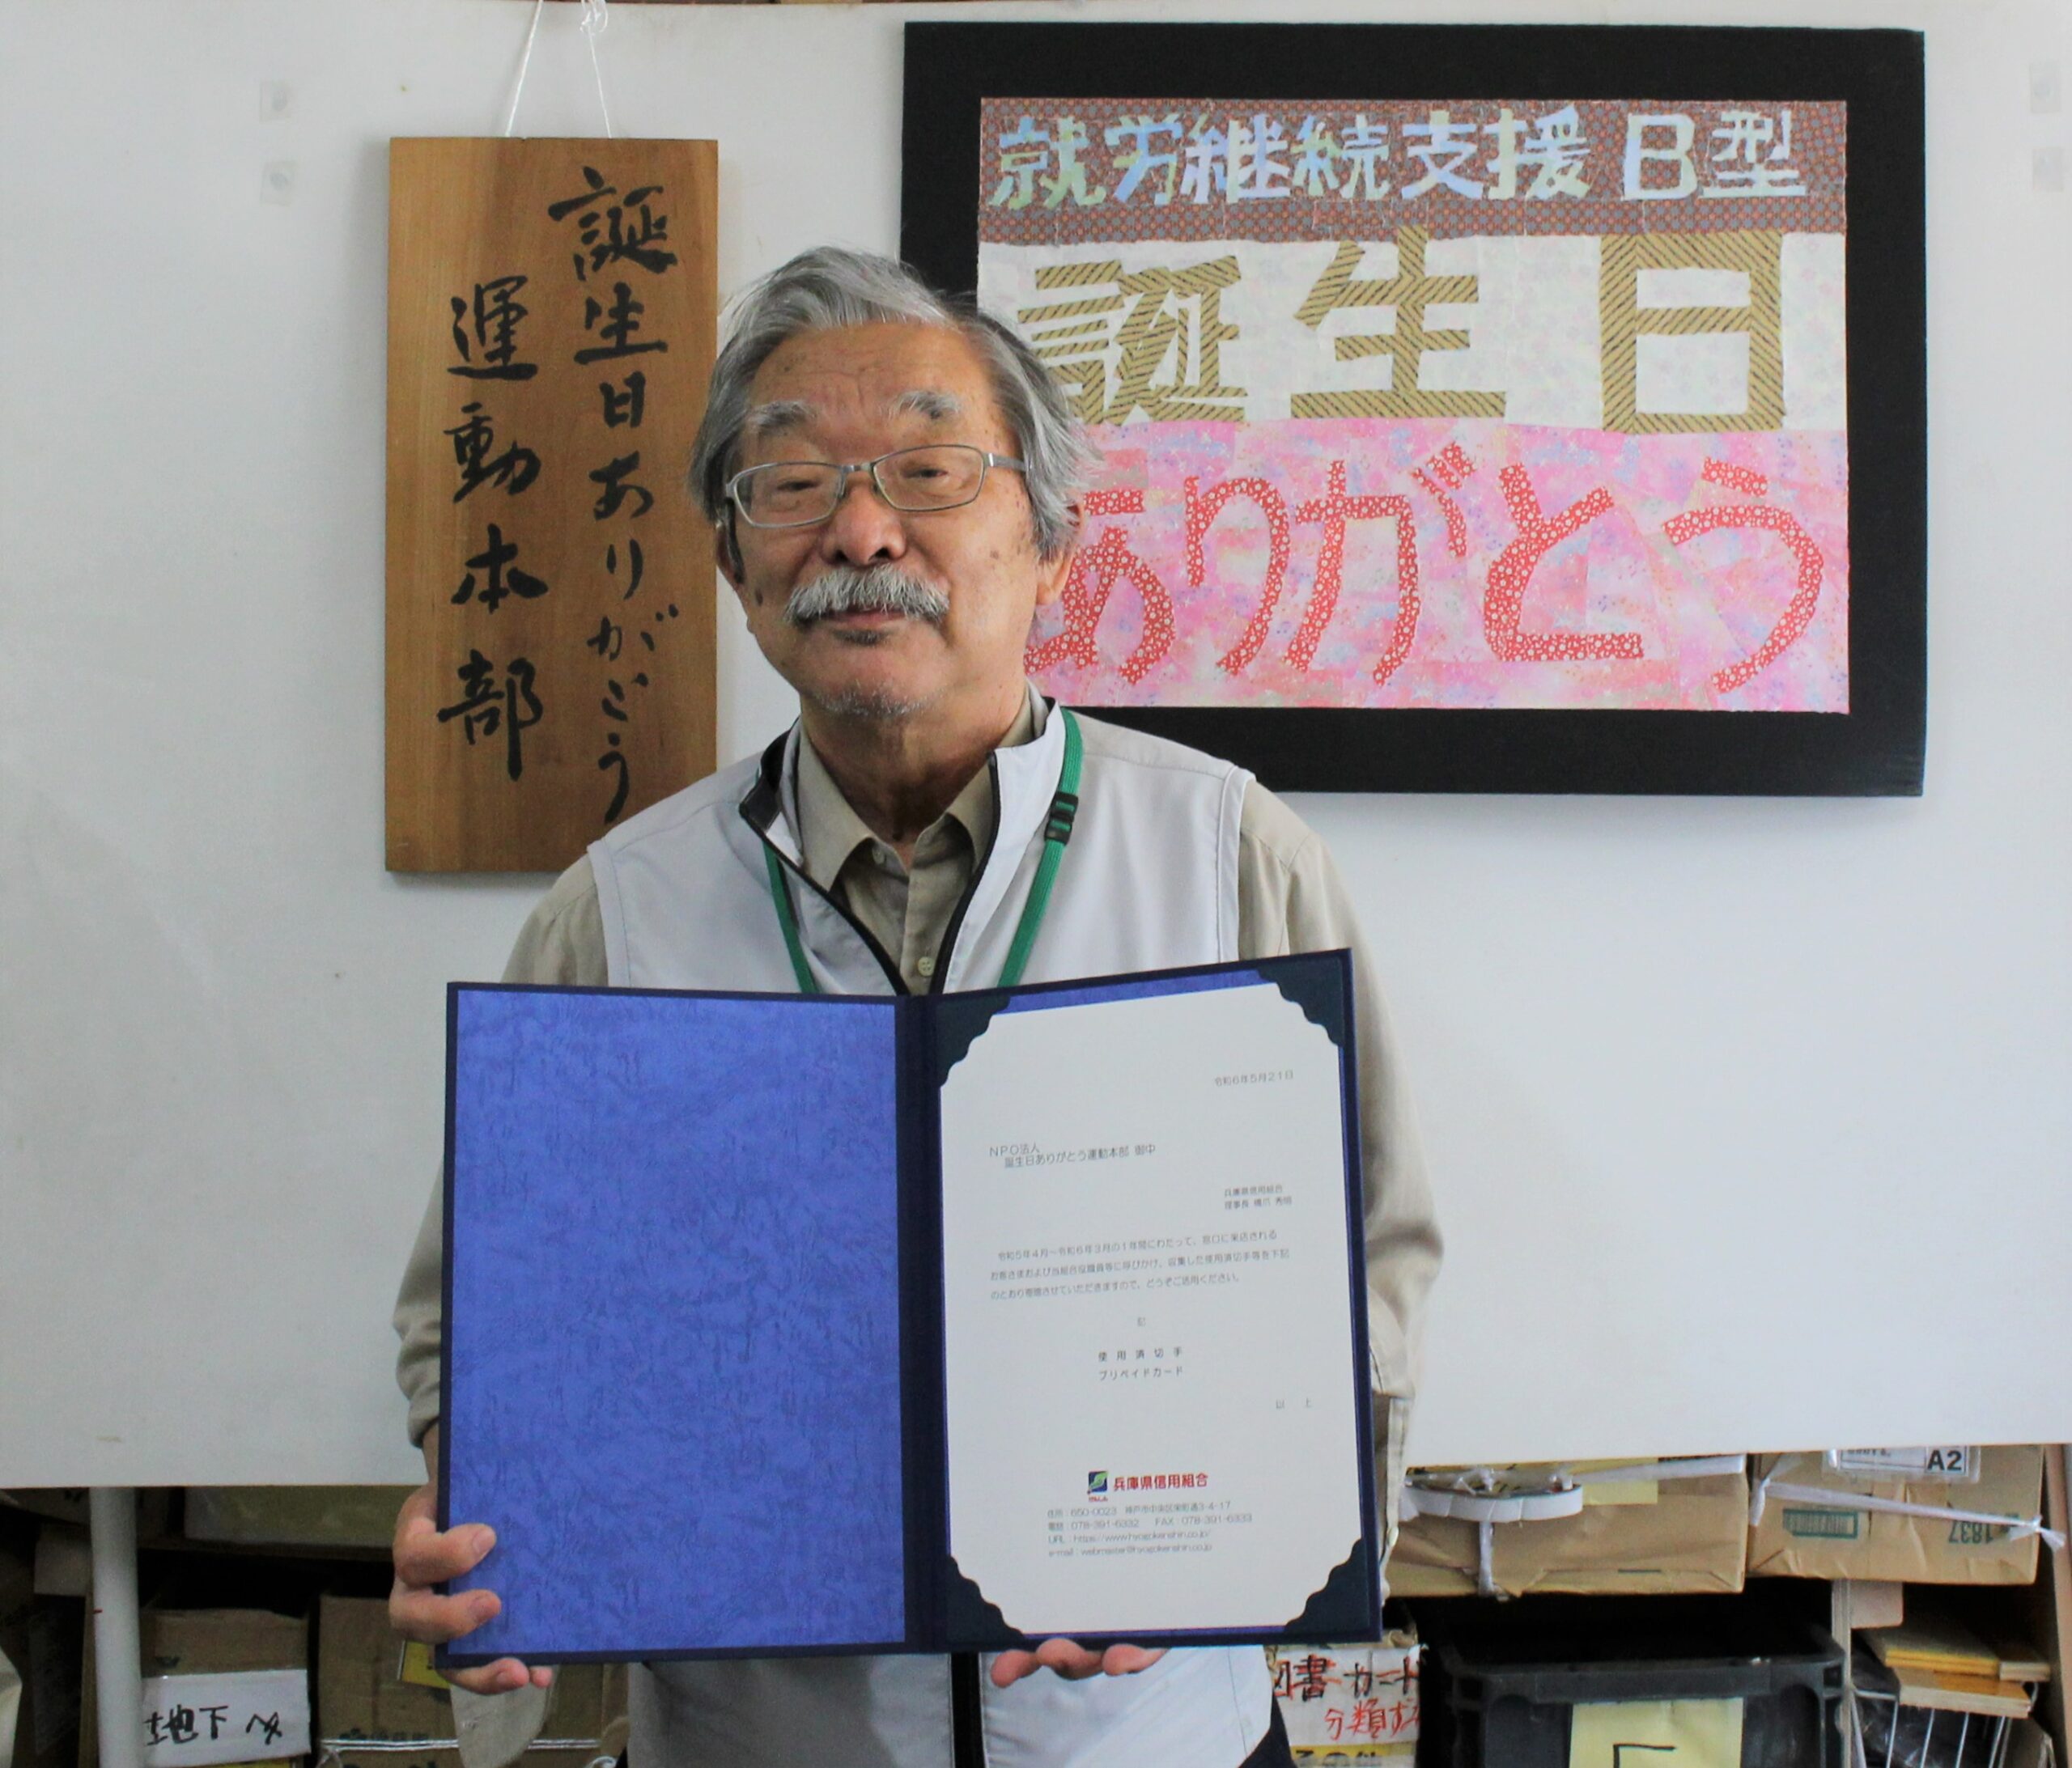 誕生日ありがとう
運動本部
就労継続支援B型
誕生日
ありがとう
令和6年5月21日
NPO法人
誕生日ありがとう運動本部 御中
兵庫県信用組合
理事長 橋爪 秀明
令和5年4月~令和6年3月の1年間にわたって、窓口に来店される
お客さまおよび当組合役職員等に呼びかけ、収集した使用済切手等を下記
のとおり寄贈させていただきますので、どうぞご活用ください。
記
使用済切手
プリペイドカード
以上
兵庫県信用組合
住所:650-0023 神戸市中央区栄町通3-4-17
電話:078-391-6332 FAX:078-391-6333
URL:https://www.hyogokenshin.co.jp/
e-mail:webmaster@hyogokenshin.co.jp
A2
1837
地下へ
図書カード
分類ずみ